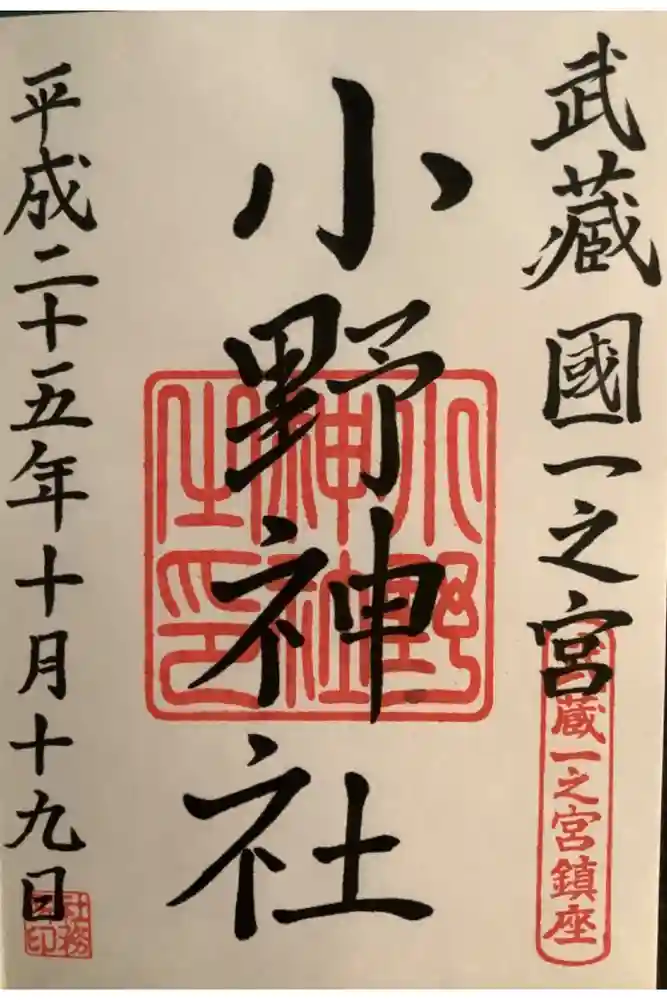 武藏國一之宮
武蔵一之宮鎮座
小野神社
小野神社之印
平成二十五年十月十九日
社務所印